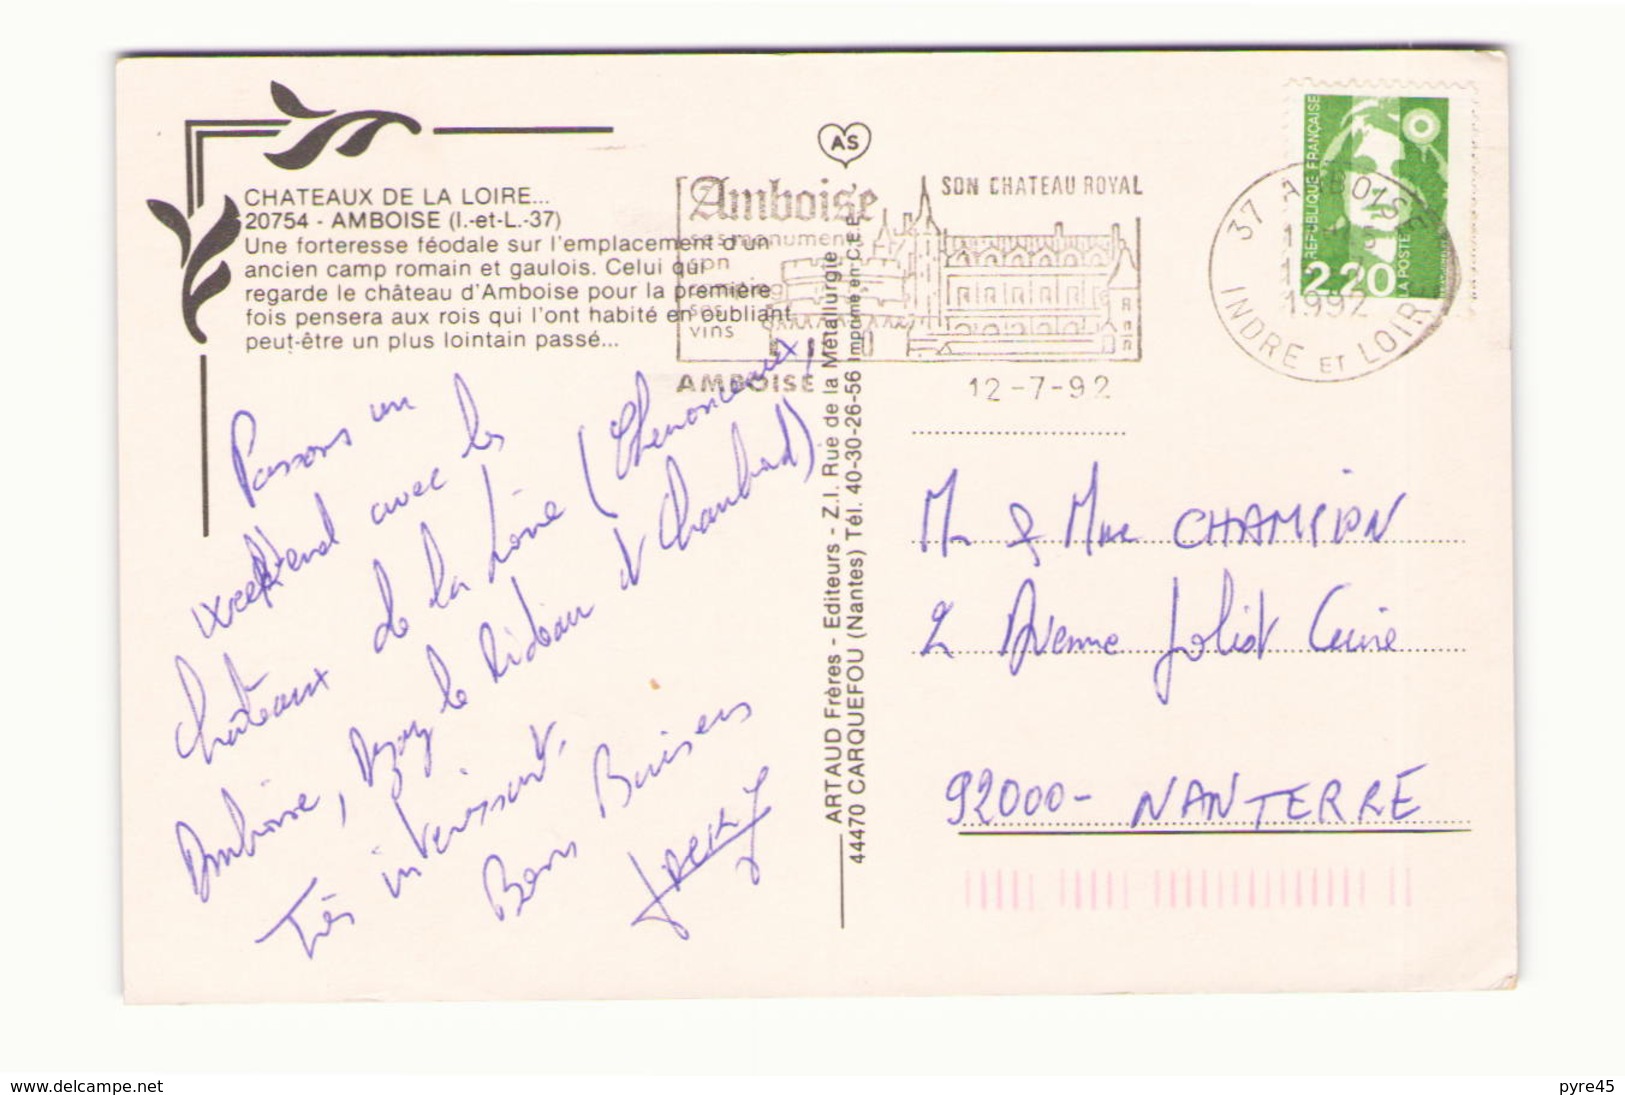 CHATEAUX DE LA LOIRE...
20754 - AMBOISE (I.-et-L.-37)
Une forteresse féodale sur l'emplacement d'un
ancien camp romain et gaulois. Celui qui
regarde le château d'Amboise pour la première
fois pensera aux rois qui l'ont habité en oubliant
peut-être un plus lointain passé...
Passons un
weekend avec les
Châteaux de la Loire (Chenonceaux,
Amboise, Azay le Rideau & Chambord)
Très intéressant.
Bons Baisers
Jacky
AS
ARTAUD Frères - Editeurs - Z.I. Rue de la Métallurgie
44470 CARQUEFOU (Nantes) Tél. 40-30-26-56 Imprimé en C.E.E.
Amboise
ses monuments
son
camping
ses
vins
SON CHATEAU ROYAL
AMBOISE
12-7-92
37 AMBOISE
1992
INDRE ET LOIRE
REPUBLIQUE FRANÇAISE
2,20
LA POSTE
M & Mme CHAMPION
2 Avenue Joliot Curie
92000 - NANTERRE
www.delcampe.net
pyre45